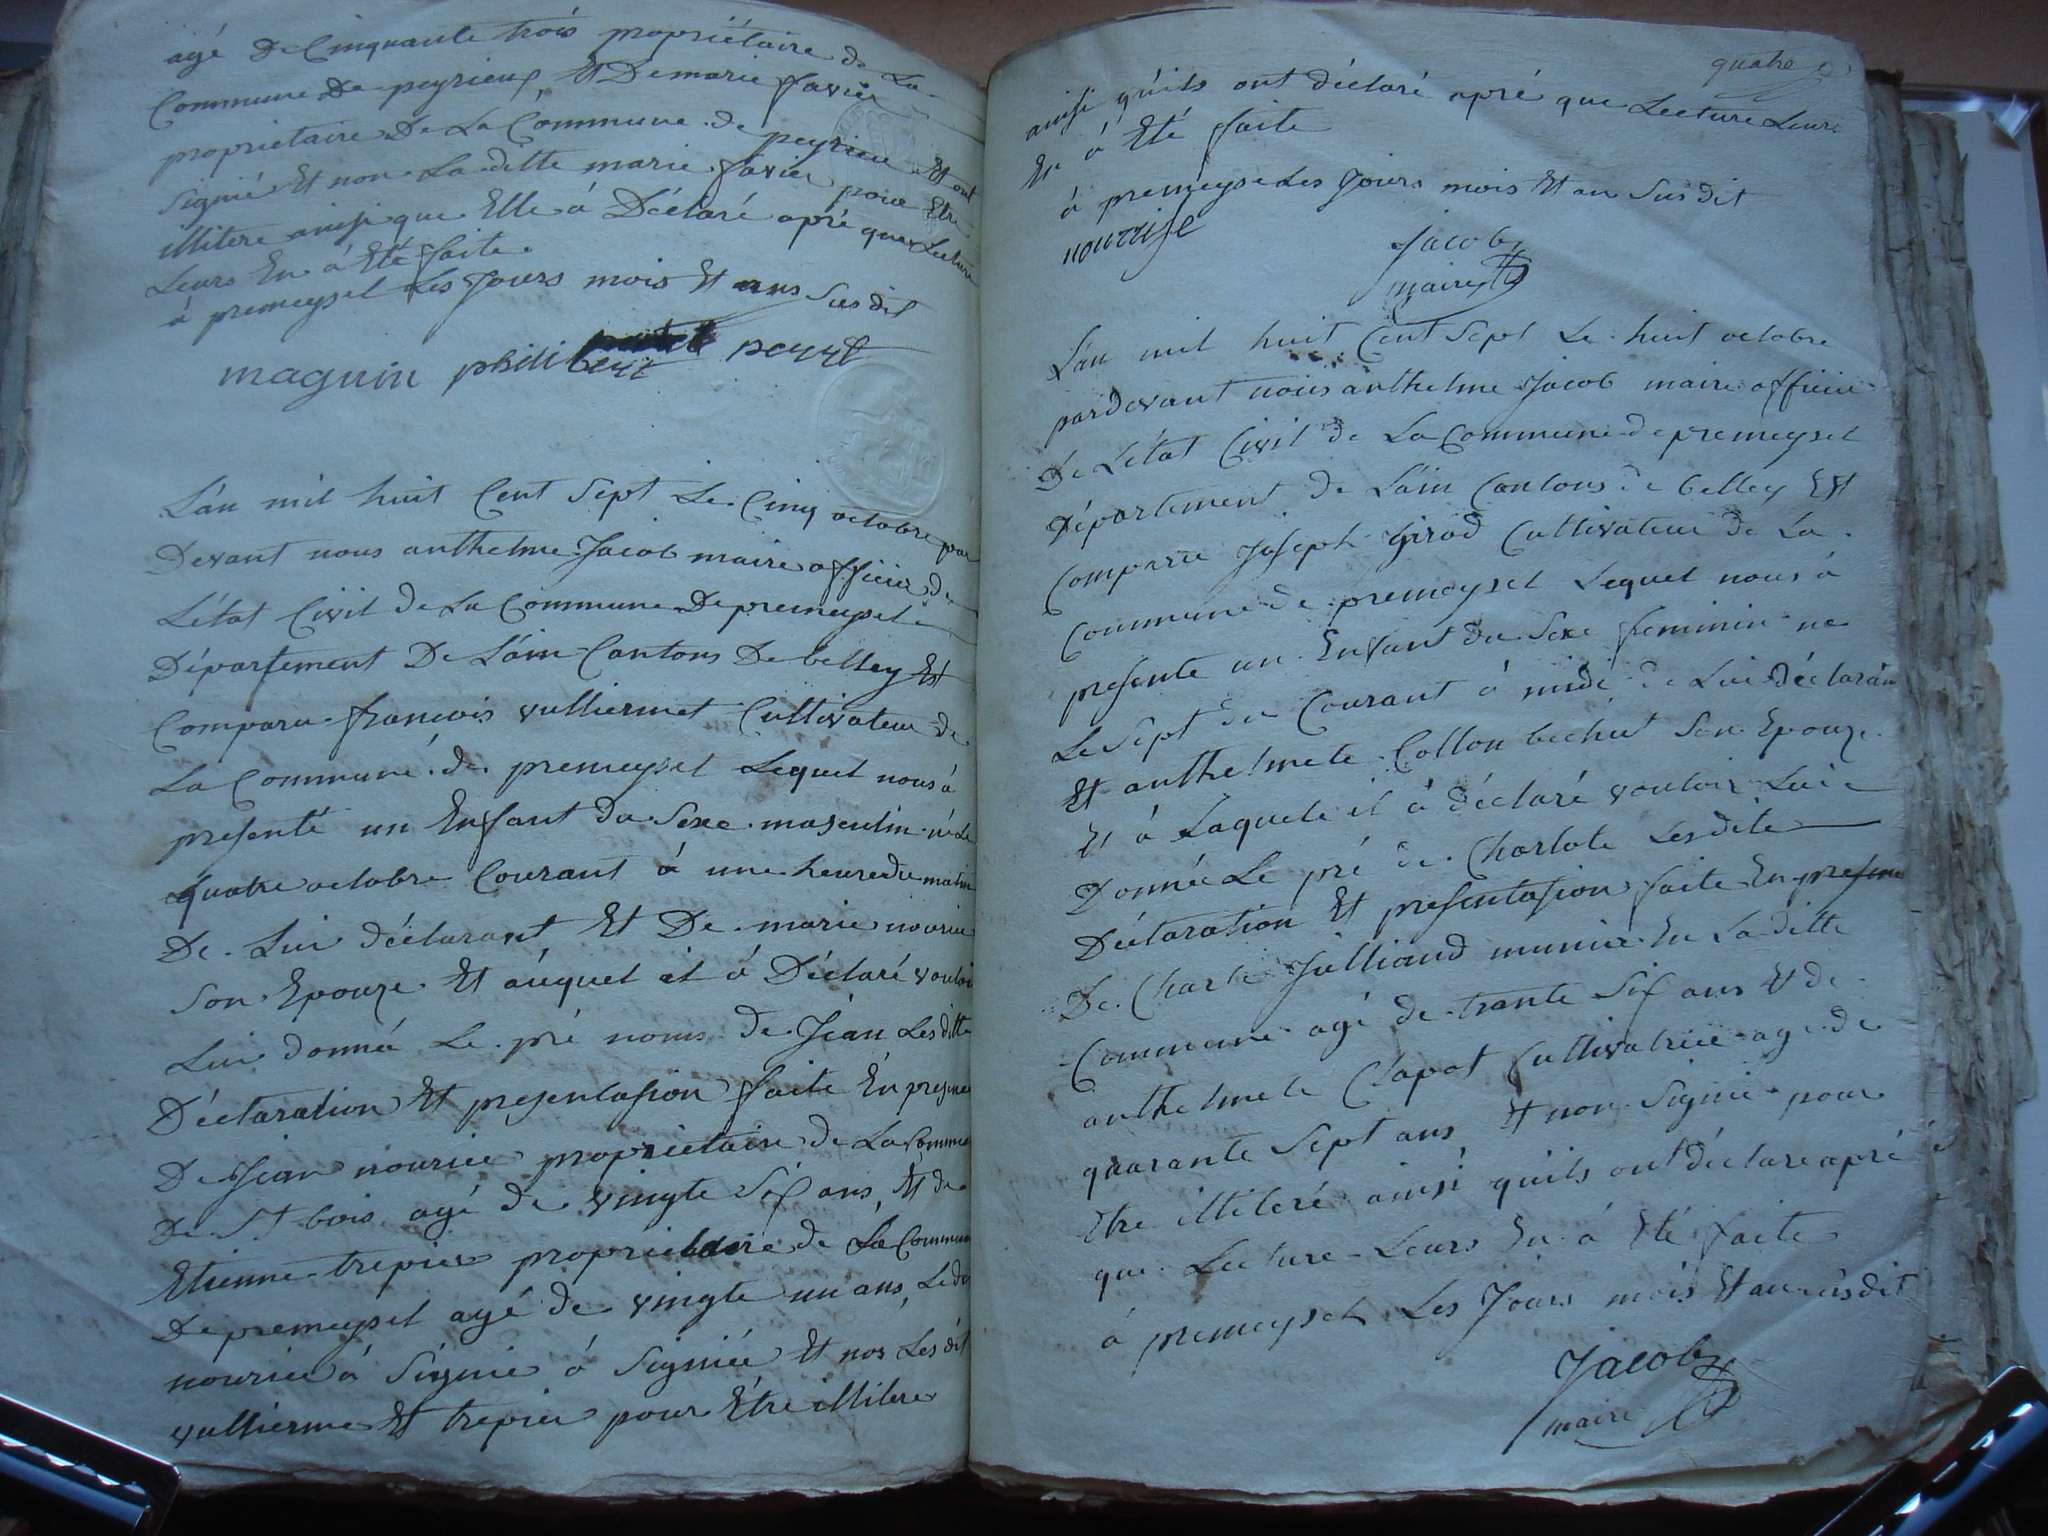 agé De Cinquante trois propriétaire de La
Commune De peyrieux, Et De marie favier
propriétaire De La Commune de peyrieu Et ont
Signié Et non La ditte marie favier pour Etre
illitere ainsi que Elle á Déclaré apré que Lecture
Leurs En á Eté faite.
á premeysel Les Jours mois Et ans Susdit
maguin philibert peyret
L'án mil huit Cent Sept Le Cinq octobre par
Devant nous anthelme Jacob maire officier de
L'état Civil de La Commune De premeysel
Département De L'áin Cantons De belley Est
Comparu francois vulliermet Cultivateur de
La Commune de premeysel Lequel nous á
presenté un Enfant du Sexe masculin né Le
quatre octobre Courant á une heure du matin
De Lui déclarant Et De marie nourice
Son Epouze Et áuquel il á Déclaré vouloir
Lui donné Le pré noms de Jéan Les ditte
Déclaration Et presentasion faite En presence
De Jéan nourice propriétaire de La Commune
De St bois agé de vingte Six ans, Et de
Etienne trepier proprietaire de La Commune
De premeysel agé de vingte un ans, Le dit
nourice á Signié á Signiée Et non Les dit
vullierme Et trepier pour Etre illitere
quatre
ainsi qu'ils ont déclaré apré que Lecture Leurs
En á Eté faite
á premeysel Les Jours mois Et an Susdit
nourrise
Jacob
maire
L'án mil huit Cent Sept Le huit octobre
pardevant nous anthelme Jacob maire officier
De L'état Civil de La Commune de premeysel
Département de L'áin Cantons de belley Est
Comparu Joseph Girod Cultivateur de La
Commune de premeysel Lequel nous á
presente un Enfant du Sexe feminin ne
Le Sept du Courant á midi de Lui déclarant
Et anthelmete Collon bechut Son Epouze
Et á Laquele il á déclaré vouloir Lui
Donnée Le pré de Charlote Lesdite
Déclaration Et presentasion faite En presence
De Charle Julliand munier En La ditte
Commune agé de trante Six ans Et de
anthelmete Chapot Cultivatrice age de
quarante Sept ans Et non Signié pour
Etre illiteré ainsi quils ont déclare apré
que Lecture Leurs En á Eté faite
á premeysel Les Jours mois Et an susdit
Jacob
maire